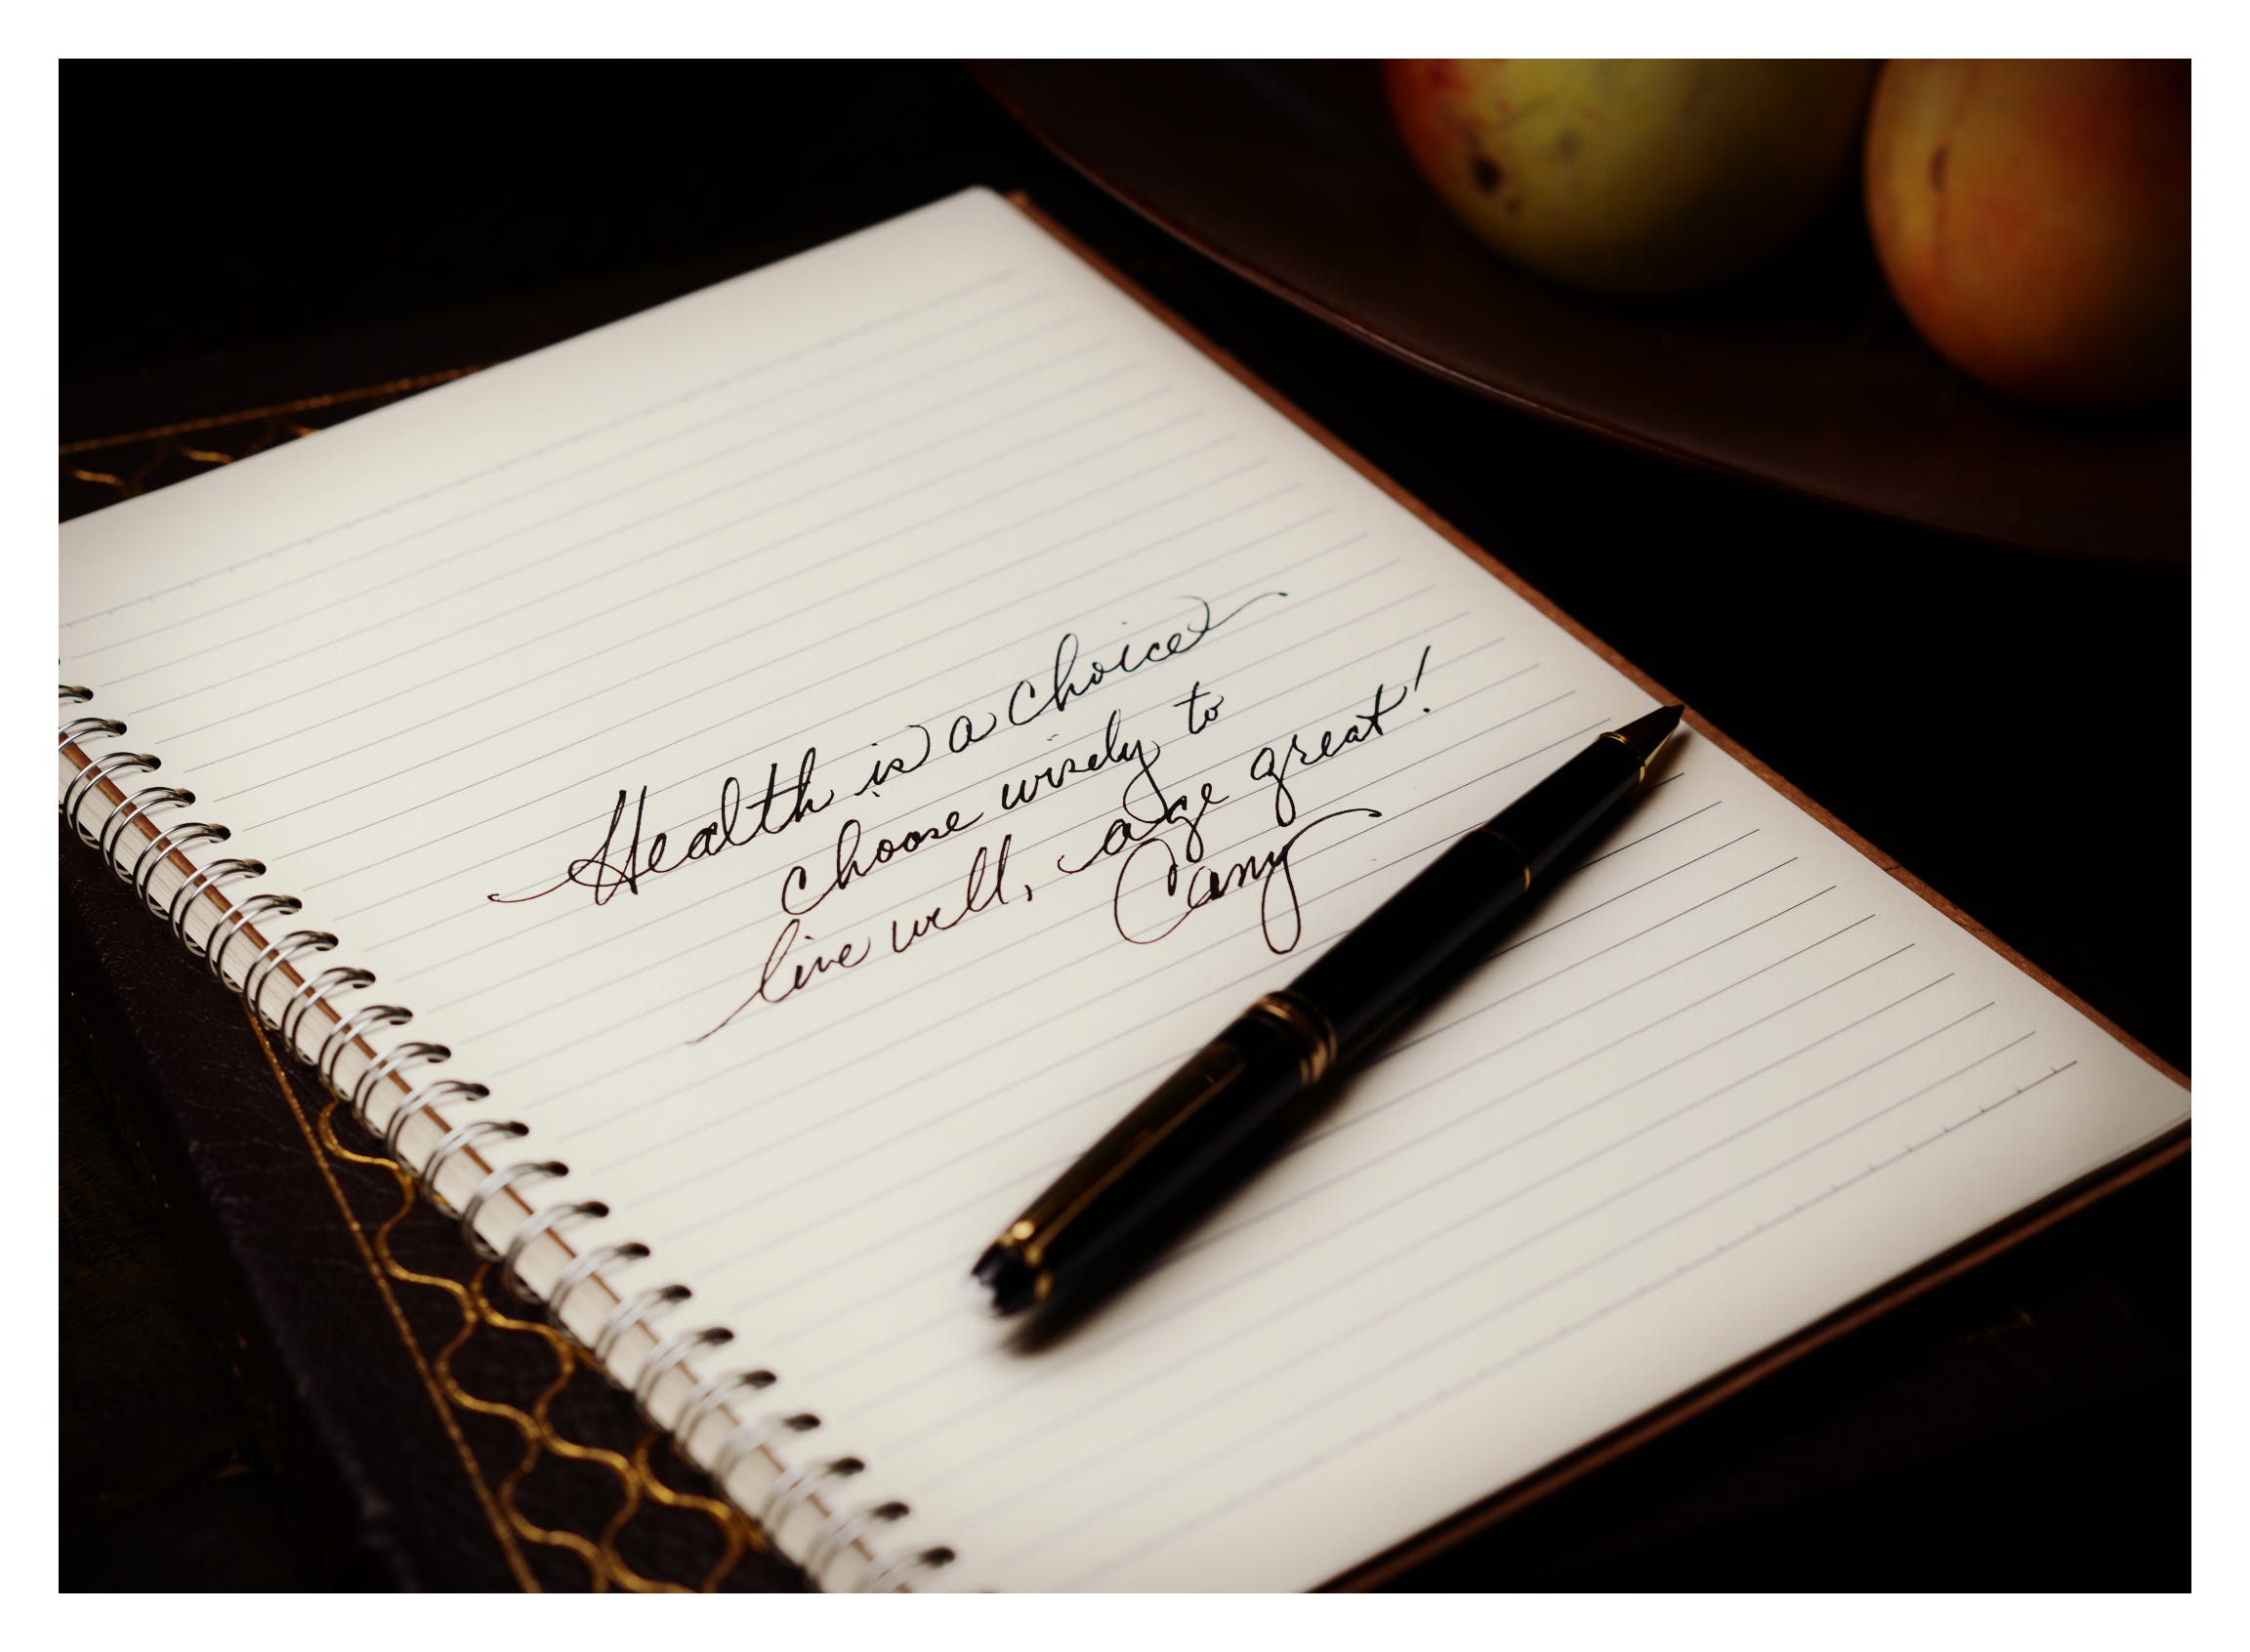 Health is a choice
choose wisely to
live well, age great!